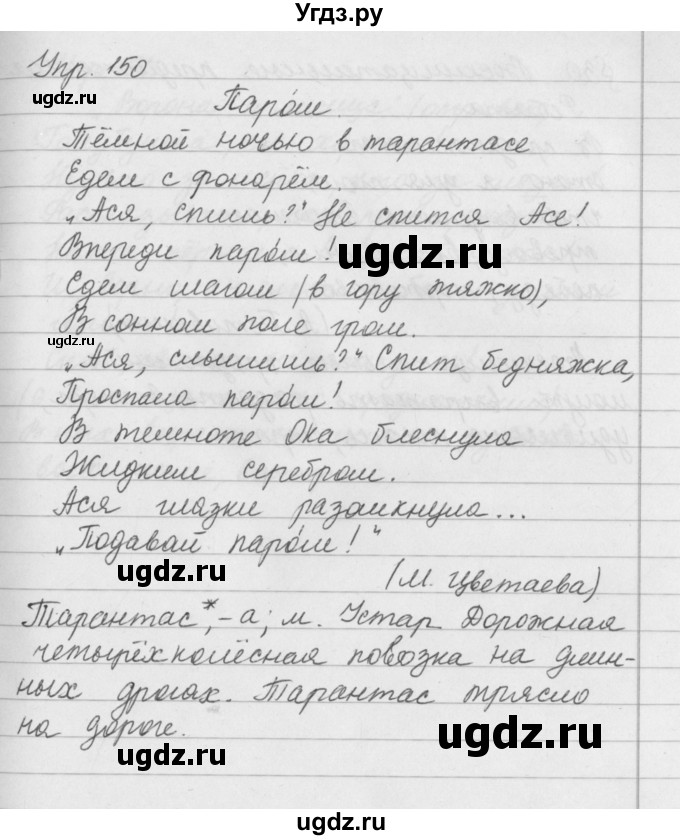 Угдз.ру
Упр. 150
ugdz.ru
Паро́м.
Тёмной ночью в тарантасе
Едем с фонарём.
„Ася, спишь?" Не спится Асе!
Впереди паро́м!
ugdz.ru
Едем шагом (в гору тяжко),
В сонном поле гром.
„Ася, слышишь?" Спит бедняжка,
Проспала паро́м!
В темноте Ока блеснула
Жидким серебром.
Ася глазки разомкнула...
„Подавай паро́м!"
ugdz.ru
(М. Цветаева)
Тарантас*, -а; м. Устар. Дорожная
четырёхколёсная повозка на длин-
ных дрогах. Тарантас трясло
на дороге.
ugdz.ru
ugdz.ru
ugdz.ru